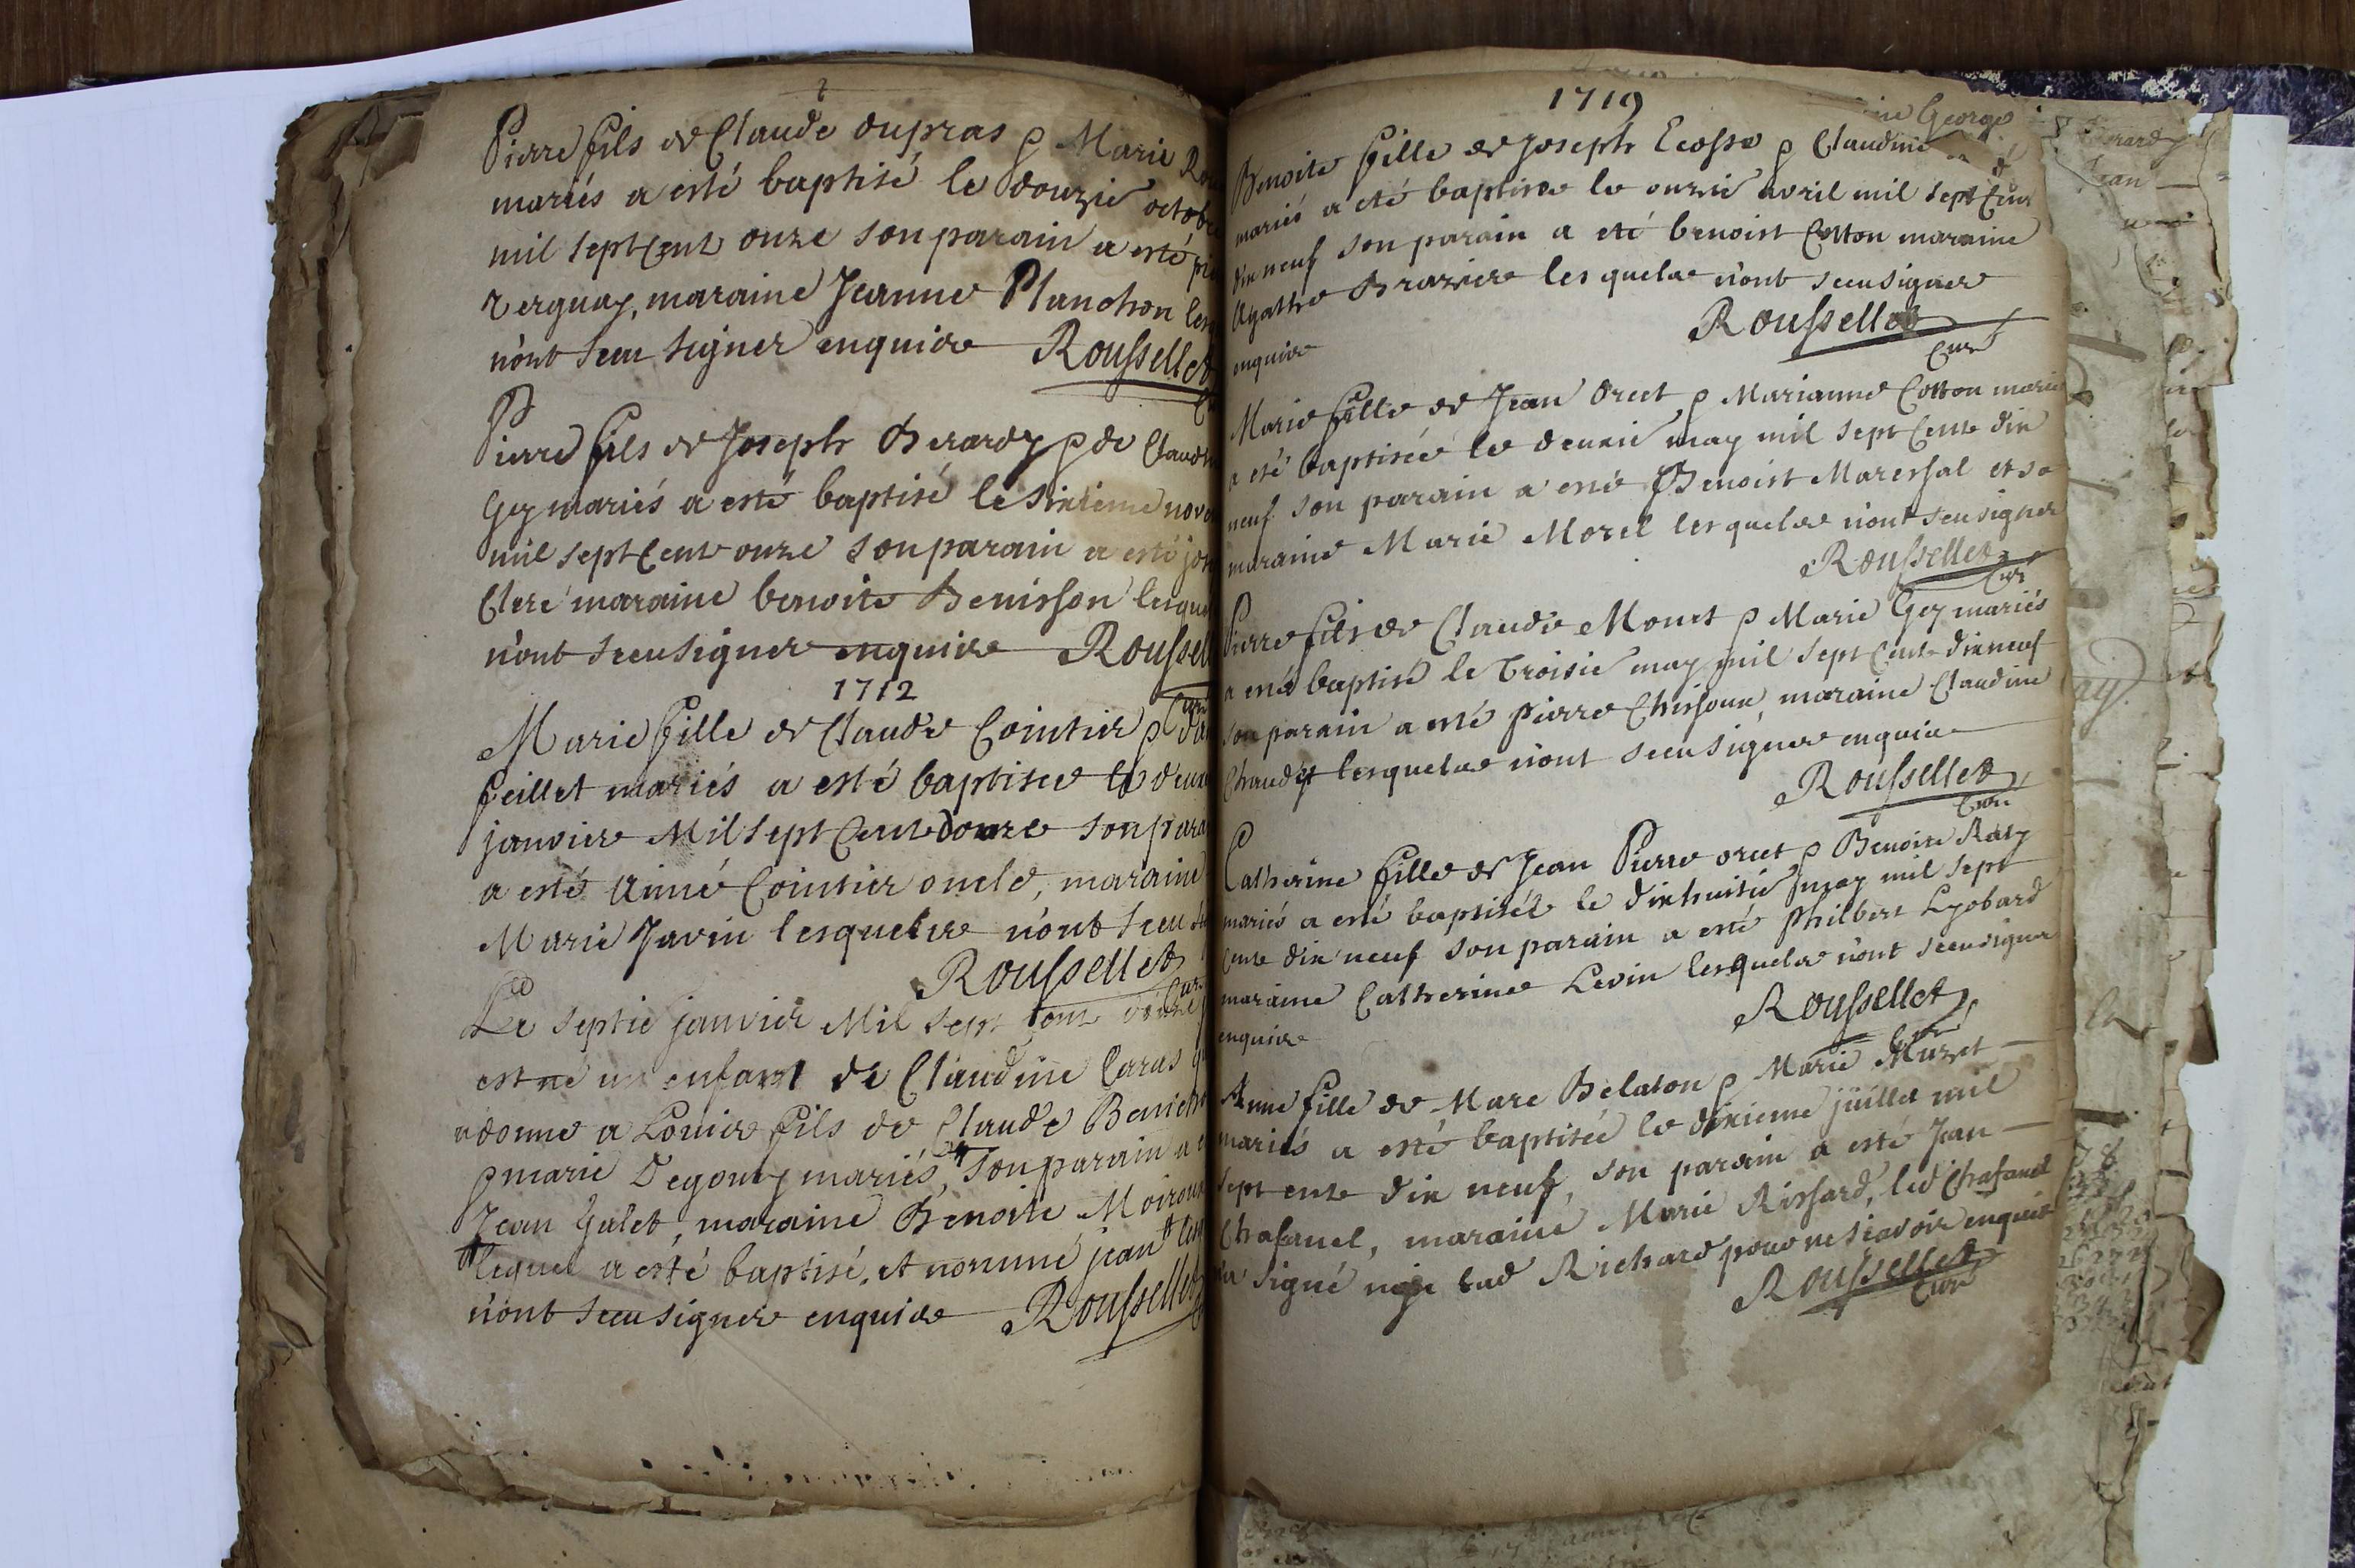 Pierre fils de Claude dupras & Marie
mariés a esté baptisé le douzie octobre
mil sept cent onze son parain a esté
verguay, maraine Jeanne Planchon
n'ont sceu signer enquire Roussellet
Pierre fils de Joseph Berardy & de Claud
Gey mariés a esté baptisé le sixieme nov
mil sept cent onze son parain a esté jos
Clere maraine benoite Benisson lesque
n'ont sceu signer enquire Roussel
1712
Marie fille de Claude Cointier &
feillet mariés a esté baptisee le deux
janvier Mil sept cent douze son para
a esté aimé Cointier oncle, maraine
Marie Javin lesquels n'ont sceu
Roussellet
Curé
Le septie janvier Mil sept cent douze
est né un enfant de Claudine Caras
a donné a Louis fils de Claude
& marie Degouy mariés, son parain a
Jean Galet, maraine Benoite Moiroux
lequel a esté baptisé, et nommé jean
n'ont sceu signer enquire Roussellet
1719
George
Benoite fille de Joseph Ecosse & Claudine
mariés a eté baptisee le onzie avril mil sept cent
dix neuf son parain a eté benoist Cotton maraine
Agathe Braziere lesquels n'ont sceu signer
enquire Roussellet
Curé
Marie fille de Jean Orcet & Marianne Cotton mariés
a eté baptisée le deuxie may mil sept cent dix
neuf son parain a esté Benoist Maressal et sa
maraine Marie Morel lesquels n'ont sceu signer
Roussellet
Curé
Pierre fils de Claude Monet & Marie Gey mariés
a esté baptisé le troisie may mil sept cent dix neuf
son parain a esté pierre Chissoux, maraine Claudine
Chaudet lesquels n'ont sceu signer enquire
Roussellet
Curé
Catherine fille de Jean Pierre orcet & Benoite Raty
mariés a esté baptisée le dixhuitie may mil sept
cent dix neuf son parain a esté Philbert Lyobard
maraine Catherine Levin lesquels n'ont sceu signer
enquire Roussellet
Curé
Anne fille de Marc Belaton & Marie Muzet
mariés a esté baptisée le dixieme juillet mil
sept cent dix neuf, son parain a esté Jean
Chafanel, maraine Marie Rissard, led Chafanel
a signé non lad Richard pour ne scavoir enquire
Roussellet
Curé